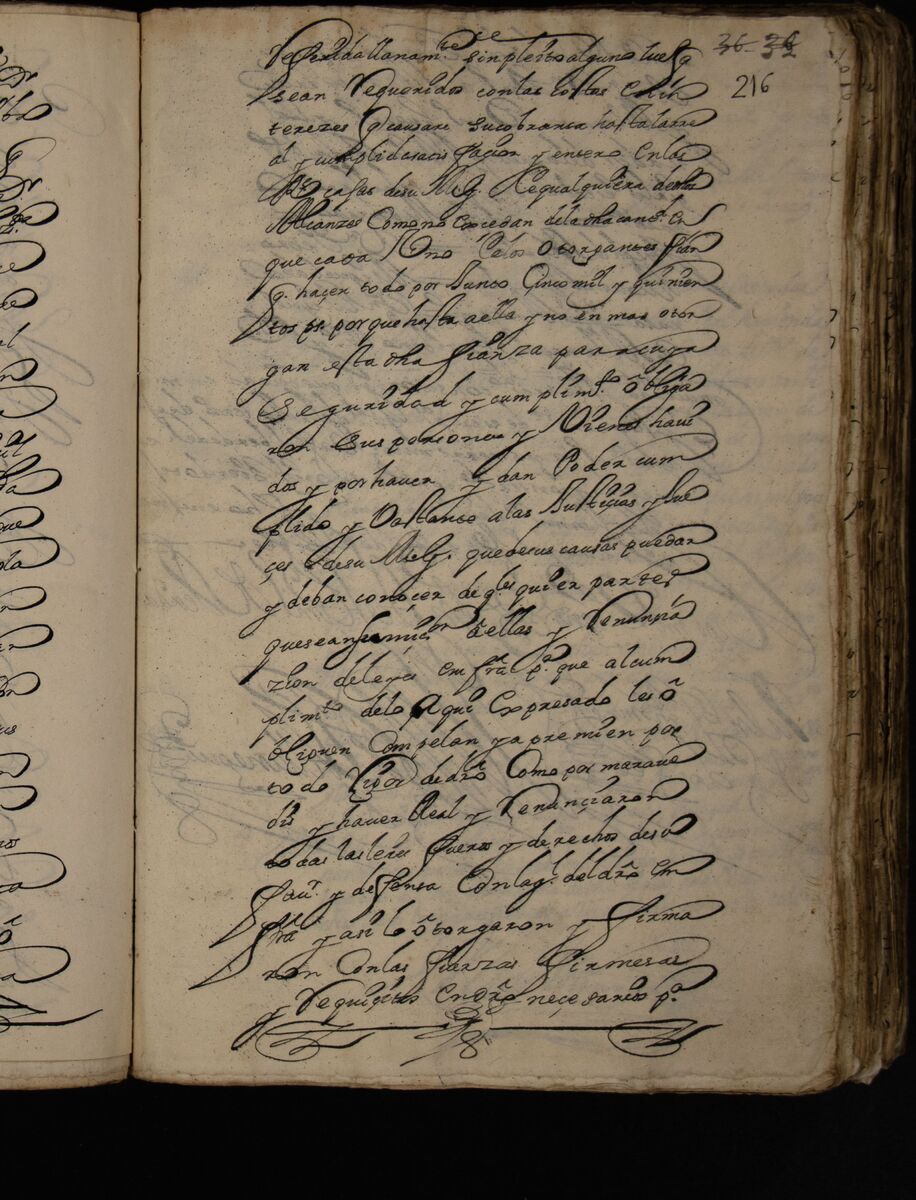 36 - 36
216
referida llanamte sin pleito alguno luego q
sean requeridos con las costas e in
terezes q causare su cobranza hasta la re
al y cumplida satis facion y entero en las
Rs casas de su Mgd.
alcanzes como no excedan de la dha cantd. en
que cada Uno de los otorgantes fian
q. haçen todo por Junto Çinco mil y quinien
tos ps. porque hasta aella y no en mas otor
gan esta dha fianza para cuya
Seguridad y cumplimto. obliga
ron sus personas y Vienes havi
dos y por haver y dan Poder cum
plido y Vastante a las Justiçias y Jue
çes de su Mgd. que de sus causas puedan
y deban conocer de qles quier partes
que sean a ellas y Renuncia
zion de leyes en fra pa. que al cum
plimto. de lo Aqui Expresado les o
bliguen Compelan y apremien por
todo Rigor de dro Como por marave
dis y haver Real y Renunçiaron
todas las leies fueros y derechos de su
faur. y defensa Con la gl. del dro en
fra y asi lo otorgaron y firma
ron Con las fuerzas firmesas
y Requiçitos en dro neçesarios pa.